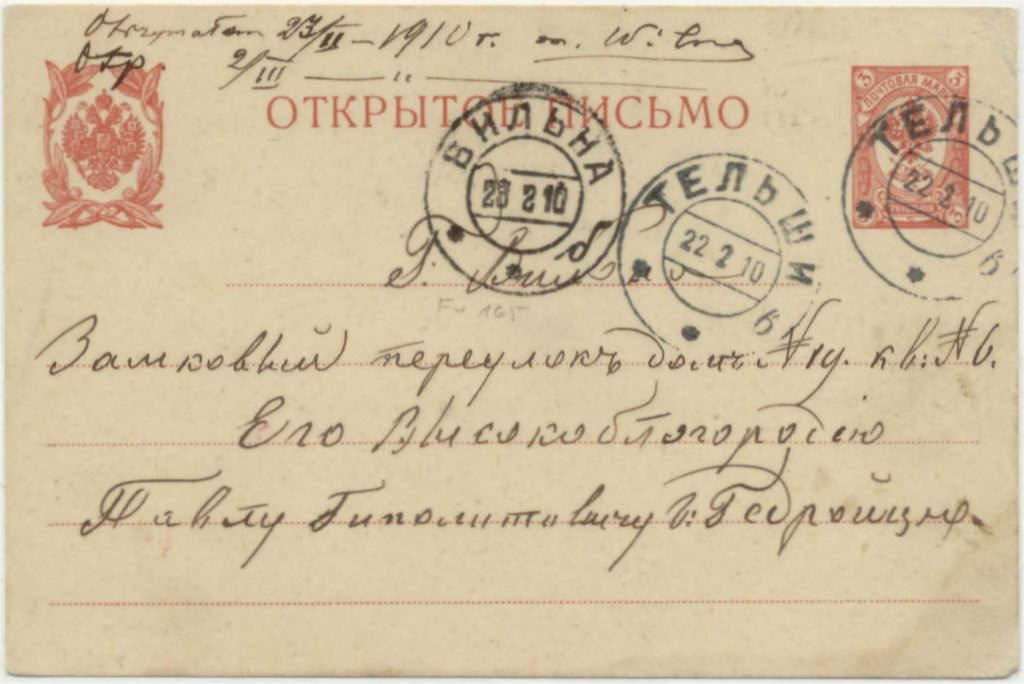 23/II – 1910 г. m. Wilna
Отр. 2/III — " —
ОТКРЫТОЕ ПИСЬМО
3 ПОЧТОВАЯ МАРКА 3
ВИЛЬНА
23 2 10
б
ТЕЛЬШИ
22 2 10
б
ТЕЛЬШИ
22 2 10
б
Г. Вильна
165
Замковый переулокъ домъ № 19. кв: № 6.
Его Высокоблагородію
Павлу Гиполитовичу Гедройцю.